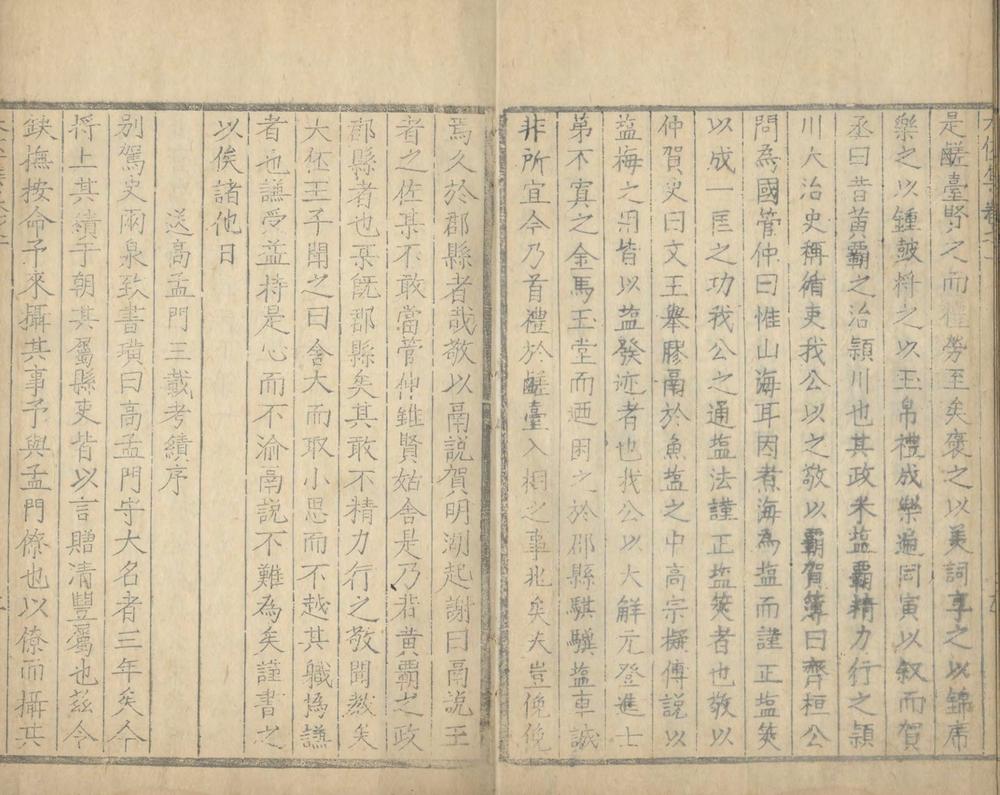 是鹺臺賢之而禮勞至矣褒之以美詞享之以錦席
樂之以鍾皷将之以玉帛禮成樂遍同寅以叙而賀
丞曰昔黄霸之治頴川也其政米塩霸精力行之頴
川大治史稱循吏我公以之敬以霸賀簿曰齊桓公
問為國管仲曰惟山海耳因煮海為塩而謹正塩筴
以成一匡之功我公之通塩法謹正塩筴者也敬以
仲賀史曰文王舉膠鬲於魚塩之中高宗擬傅說以
塩梅之用皆以塩發迹者也我公以大解元登進士
第不寘之金馬玉堂而迺困之於郡縣騏驥塩車誠
非所宜今乃首禮於鹺臺入相之事兆矣夫豈俛俛
焉久於郡縣者哉敬以鬲說賀明湖起謝曰鬲說王
者之佐某不敢當管仲雖賢姑舍是乃若黄霸之政
郡縣者也某旣郡縣矣其敢不精力行之敬聞教矣
大伾王子聞之曰舍大而取小思而不越其職撝謙
者也謙受益持是心而不渝鬲說不難為矣謹書之
以俟諸他日
送高孟門三載考績序
别駕史兩泉致書璜曰高孟門守大名者三年矣今
将上其績于朝其屬縣吏皆以言贈清豐屬也兹令
缺撫按命予來攝其事予與孟門僚也以僚而攝其